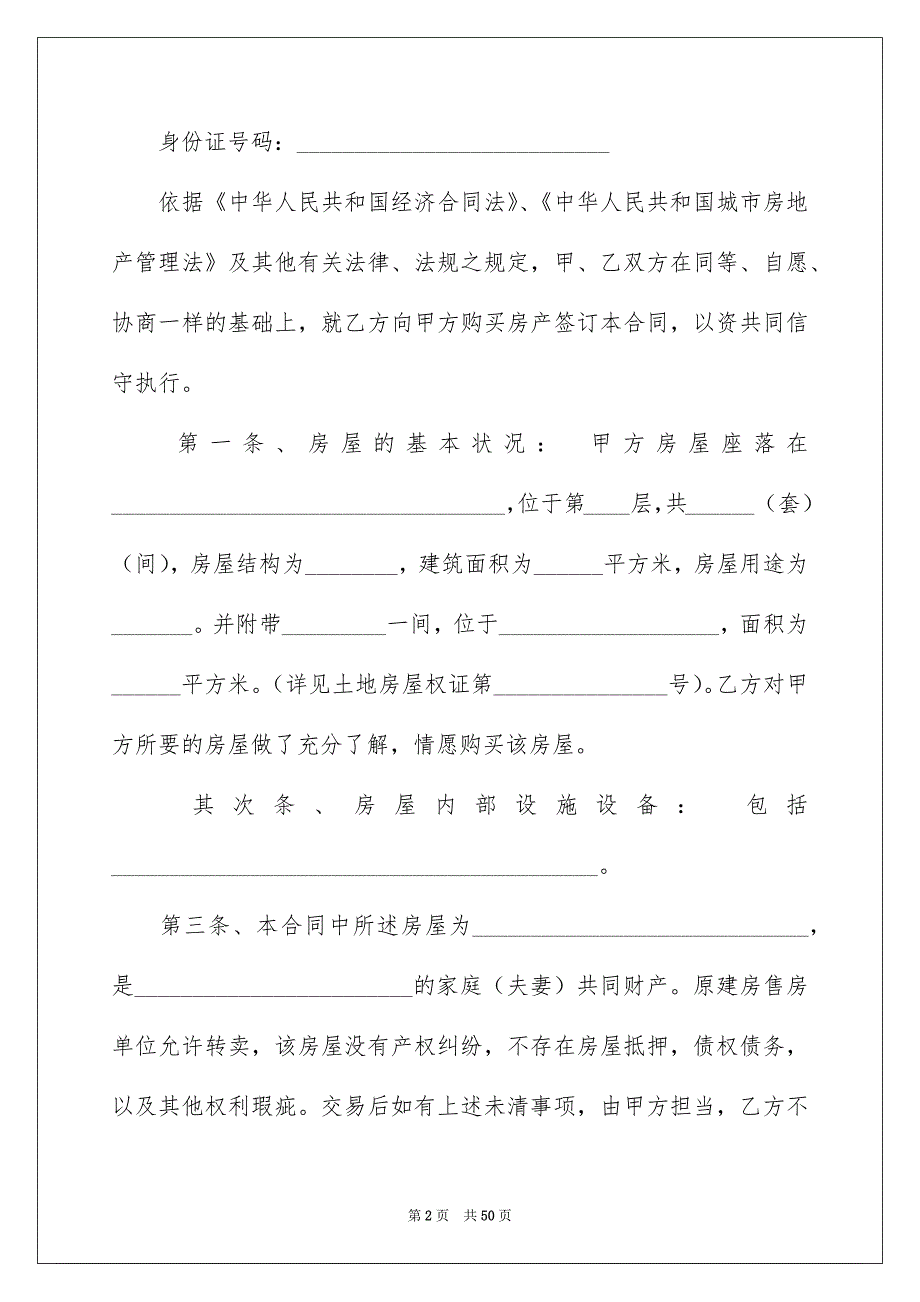 身份证号码：___________________________
依据《中华人民共和国经济合同法》、《中华人民共和国城市房地
产管理法》及其他有关法律、法规之规定，甲、乙双方在同等、自愿、
协商一样的基础上，就乙方向甲方购买房产签订本合同，以资共同信
守执行。
第一条、房屋的基本状况： 甲方房屋座落在
__________________________________，位于第____层，共______（套）
（间），房屋结构为________，建筑面积为______平方米，房屋用途为
_______。并附带_________一间，位于___________________，面积为
______平方米。（详见土地房屋权证第_______________号）。乙方对甲
方所要的房屋做了充分了解，情愿购买该房屋。
其次条、房屋内部设施设备： 包括
__________________________________________。
第三条、本合同中所述房屋为_____________________________，
是________________________的家庭（夫妻）共同财产。原建房售房
单位允许转卖，该房屋没有产权纠纷，不存在房屋抵押，债权债务，
以及其他权利瑕疵。交易后如有上述未清事项，由甲方担当，乙方不
第 2 页 共 50 页